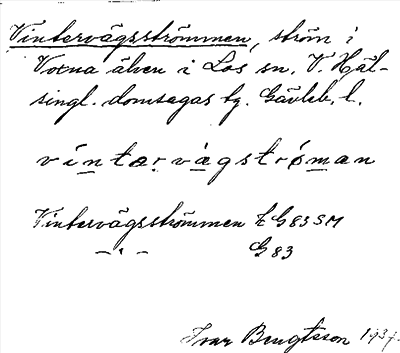 Vintervägsströmmen, ström i
Voxna älven i Los sn. V. Häl-
singl. domsagas tg. Gävleb. l.
vintərvägströman
Vintervägsströmmen EG 83 SM
—"— G 83
Ivar Bengtsson 1937.